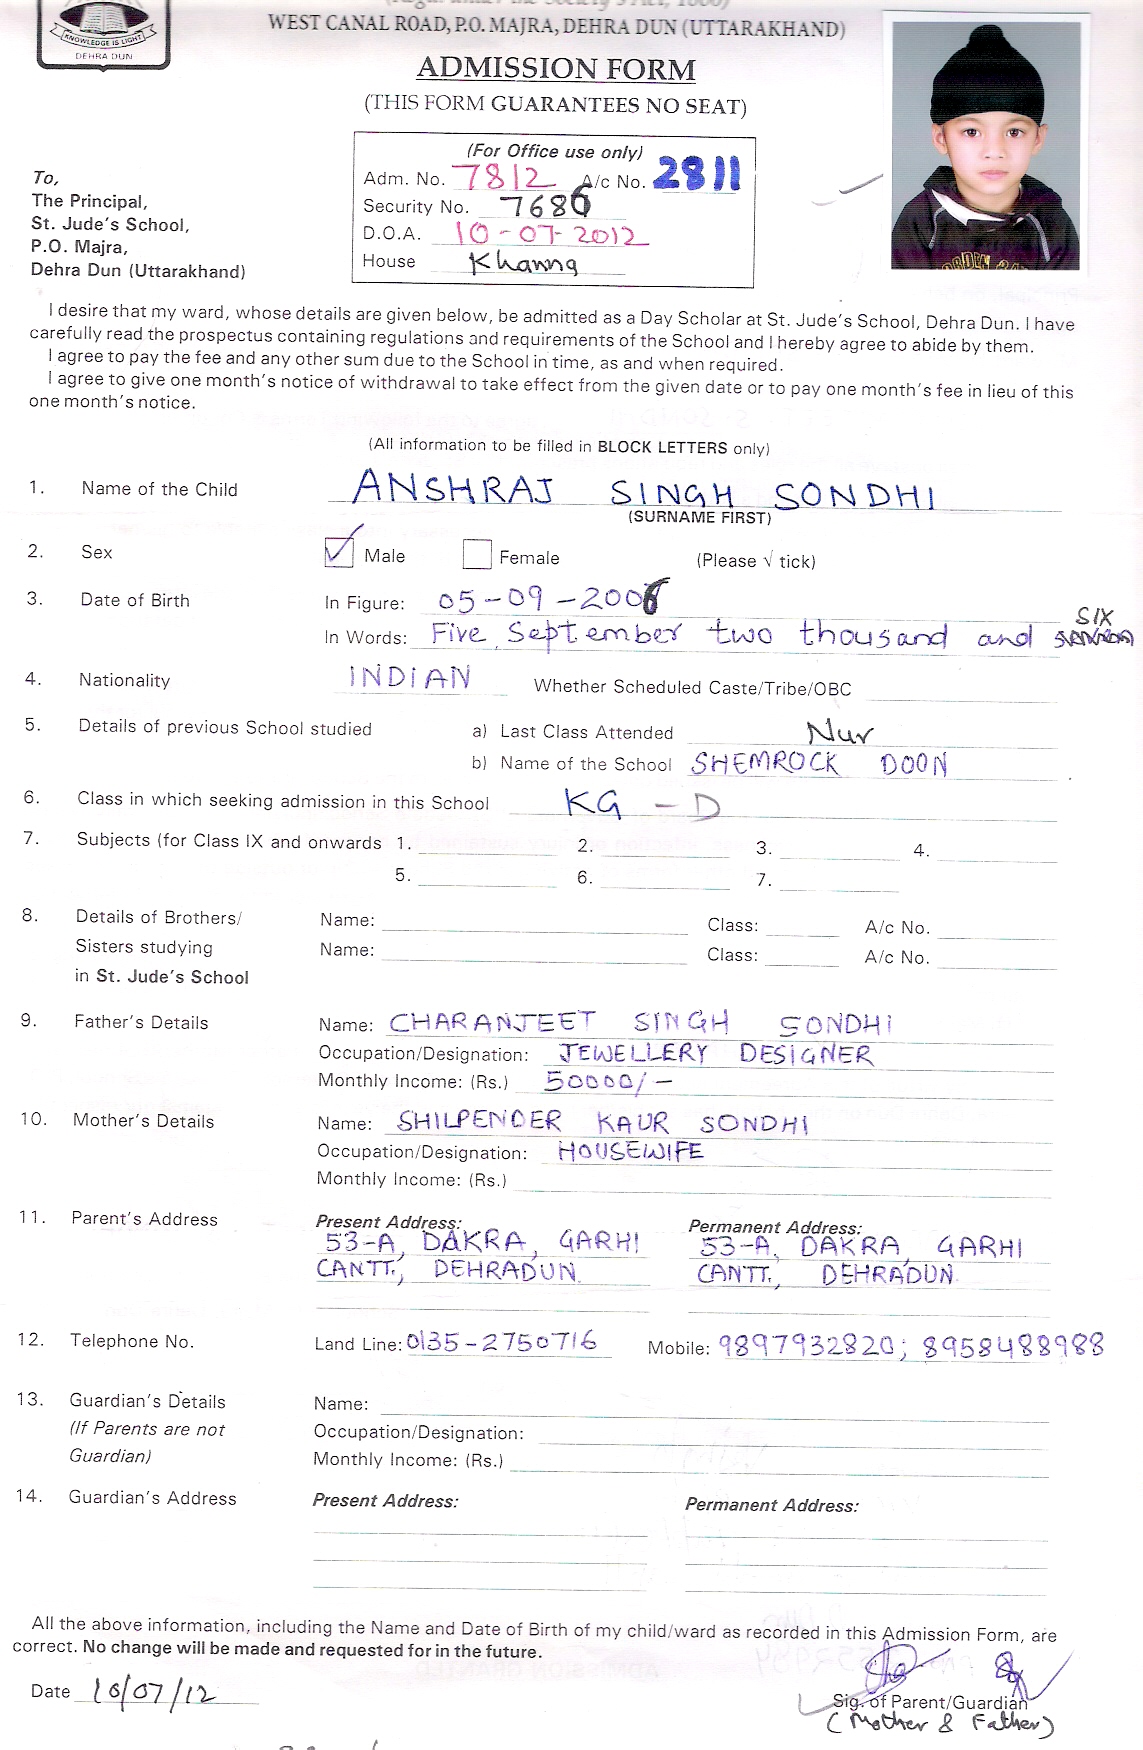 KNOWLEDGE IS LIGHT
DEHRA DUN
WEST CANAL ROAD, P.O. MAJRA, DEHRA DUN (UTTARAKHAND)
ADMISSION FORM
(THIS FORM GUARANTEES NO SEAT)
(For Office use only)
Adm. No. 7812 A/c No. 2811
Security No. 7686
D.O.A. 10-07-2012
House Khanna
To,
The Principal,
St. Jude's School,
P.O. Majra,
Dehra Dun (Uttarakhand)
I desire that my ward, whose details are given below, be admitted as a Day Scholar at St. Jude's School, Dehra Dun. I have
carefully read the prospectus containing regulations and requirements of the School and I hereby agree to abide by them.
I agree to pay the fee and any other sum due to the School in time, as and when required.
I agree to give one month's notice of withdrawal to take effect from the given date or to pay one month's fee in lieu of this
one month's notice.
(All information to be filled in BLOCK LETTERS only)
1. Name of the Child ANSHRAJ SINGH SONDHI
(SURNAME FIRST)
2. Sex ✓ Male Female (Please √ tick)
3. Date of Birth In Figure: 05-09-2006
In Words: Five September two thousand and six
4. Nationality INDIAN Whether Scheduled Caste/Tribe/OBC
5. Details of previous School studied a) Last Class Attended Nur
b) Name of the School SHEMROCK DOON
6. Class in which seeking admission in this School KG - D
7. Subjects (for Class IX and onwards 1. 2. 3. 4.
5. 6. 7.
8. Details of Brothers/ Name: Class: A/c No.
Sisters studying Name: Class: A/c No.
in St. Jude's School
9. Father's Details Name: CHARANJEET SINGH SONDHI
Occupation/Designation: JEWELLERY DESIGNER
Monthly Income: (Rs.) 50000/-
10. Mother's Details Name: SHILPENDER KAUR SONDHI
Occupation/Designation: HOUSEWIFE
Monthly Income: (Rs.)
11. Parent's Address Present Address: Permanent Address:
53-A, DAKRA, GARHI 53-A, DAKRA, GARHI
CANTT., DEHRADUN CANTT., DEHRADUN
12. Telephone No. Land Line: 0135-2750716 Mobile: 9897932820; 8958488988
13. Guardian's Details Name:
(If Parents are not Occupation/Designation:
Guardian) Monthly Income: (Rs.)
14. Guardian's Address Present Address: Permanent Address:
All the above information, including the Name and Date of Birth of my child/ward as recorded in this Admission Form, are
correct. No change will be made and requested for in the future.
Date 10/07/12
Sig. of Parent/Guardian
(Mother & Father)